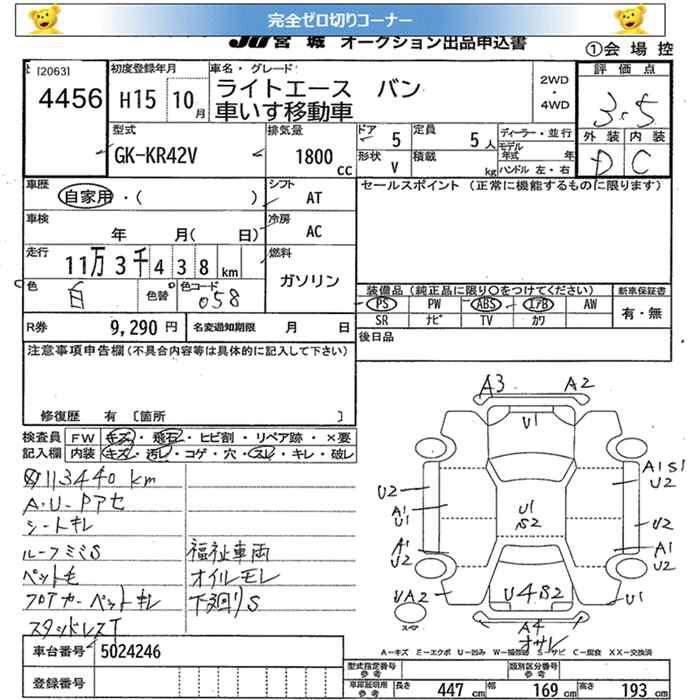 完全ゼロ切りコーナー
JU宮城 オークション出品申込書
①会場控
[2063]
4456
初度登録年月
H15 10月
車名・グレード
ライトエース バン
車いす移動車
2WD
・
4WD
評価点
3.5
外装 内装
D C
型式
GK-KR42V
排気量
1800 CC
ドア 5
定員 5人
形状 V
積載 kg
ディーラー・並行
モデル年式 年
ハンドル 左・右
車歴
自家用・( )
シフト
AT
セールスポイント (正常に機能するものに限ります)
車検
年 月( 日)
冷房
AC
走行
11万3千438km
燃料
ガソリン
色
白
色替
色コード
058
装備品(純正品に限り○をつけてください)
PS PW ABS エアB AW
SR ナビ TV カワ
新車保証書
有・無
R券 9,290円
名変通知期限 月 日
後日品
注意事項申告欄(不具合内容等は具体的に記入して下さい)
修復歴 有 〔箇所 〕
検査員記入欄
FW キズ・飛石・ヒビ割・リペア跡・×要
内装 キズ・汚レ・コゲ・穴・スレ・キレ・破レ
113440km
A・U・Pアセ
シートキレ
ルーフミミS 福祉車両
ペット毛 オイルモレ
フロアカーペットキレ 下廻りS
スタッドレスT
A3 A2
U1
A1S1
U2
U2
A1
U1
U1
S2
U2
A1
U2
A1
U2
UA2
U4S2
U1
スペア
A4
オサレ
A-キズ E-エクボ U-凹み W-補修跡 S-サビ C-腐食 XX-交換済
車台番号 5024246
登録番号
型式指定番号
参考
類別区分番号
参考
車庫証明用
参考
長さ 447cm 幅 169cm 高さ 193cm